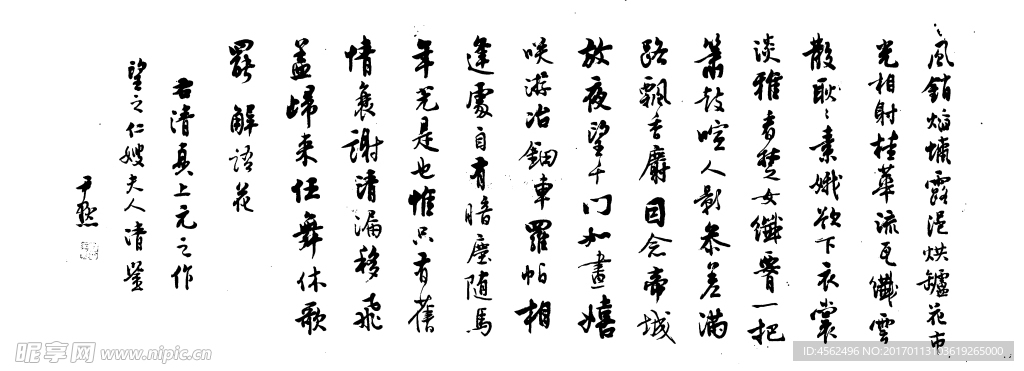 風銷焰蠟露浥烘鑪花市
光相射桂華流瓦纖雲
散耿〻素娥欲下衣裳
淡雅看楚女纖腰一把
簫鼓喧人影參差滿
路飄香麝因念帝城
放夜望千門如晝嬉
咲游冶鈿車羅帕相
逢處自有暗塵隨馬
年光是也惟只有舊
情衰謝清漏移飛
蓋歸來任舞休歌
罷 解語花
右清真上元之作
望之仁嫂夫人清鑒
尹默
昵享网 www.nipic.cn
ID:4562496 NO:20170113193619265000